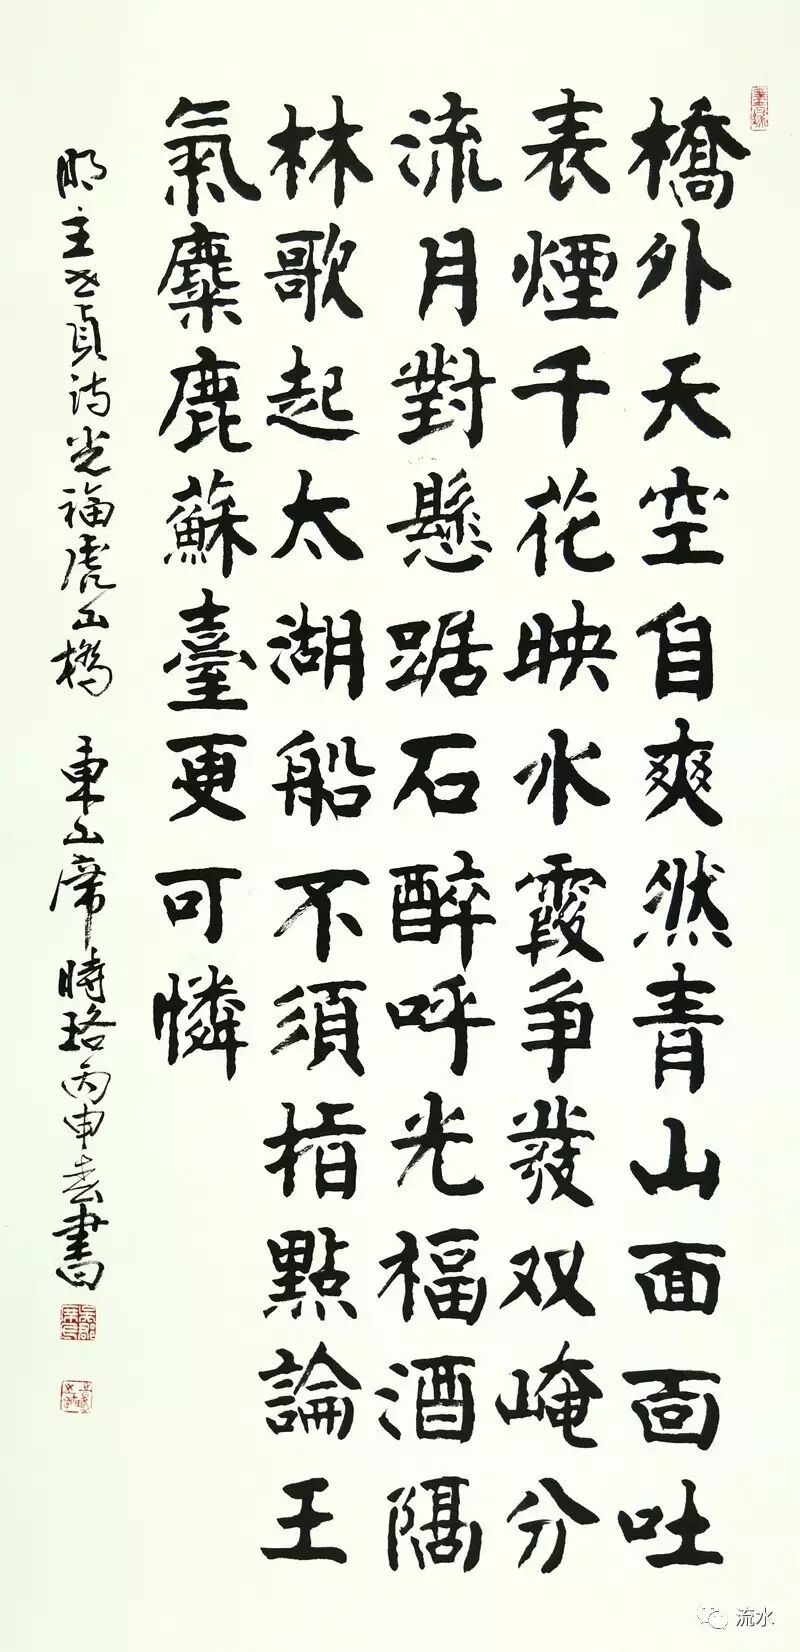 橋外天空自爽然青山面面吐
表煙千花映水霞争發双崦分
流月對懸踞石醉呼光福酒隔
林歌起太湖船不須指點論王
氣麋鹿蘇臺更可憐
明王世貞詩光福虎山橋 東山席時珞丙申春書
流水